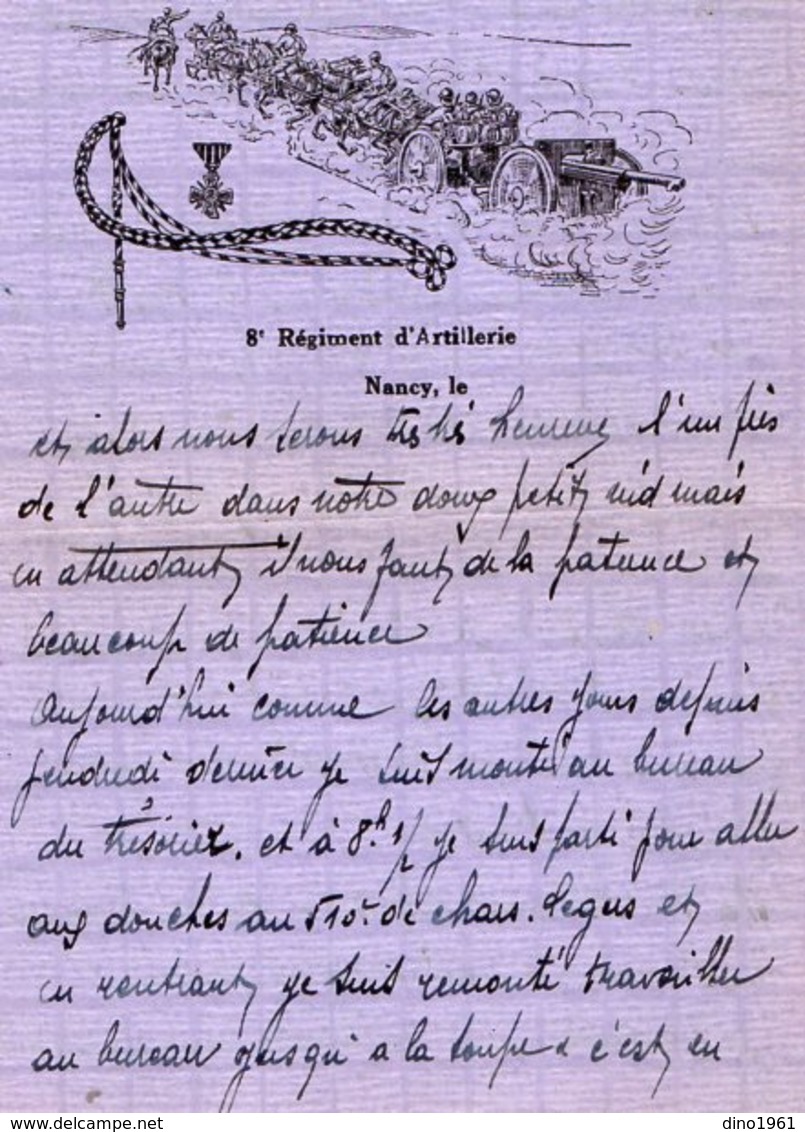 8e Régiment d'Artillerie
Nancy, le
et alors nous serons très très heureux l'un près
de l'autre dans notre doux petit nid mais
en attendant il nous faut de la patience et
beaucoup de patience
Aujourd'hui comme les autres jours depuis
vendredi dernier je suis monté au bureau
du trésorier. et à 8.h 1/2 je suis parti pour aller
aux douches au 510e de chars. et
en rentrant je suis remonté travailler
au bureau jusqu'a la soupe c'est en
www.delcampe.net
dino1961